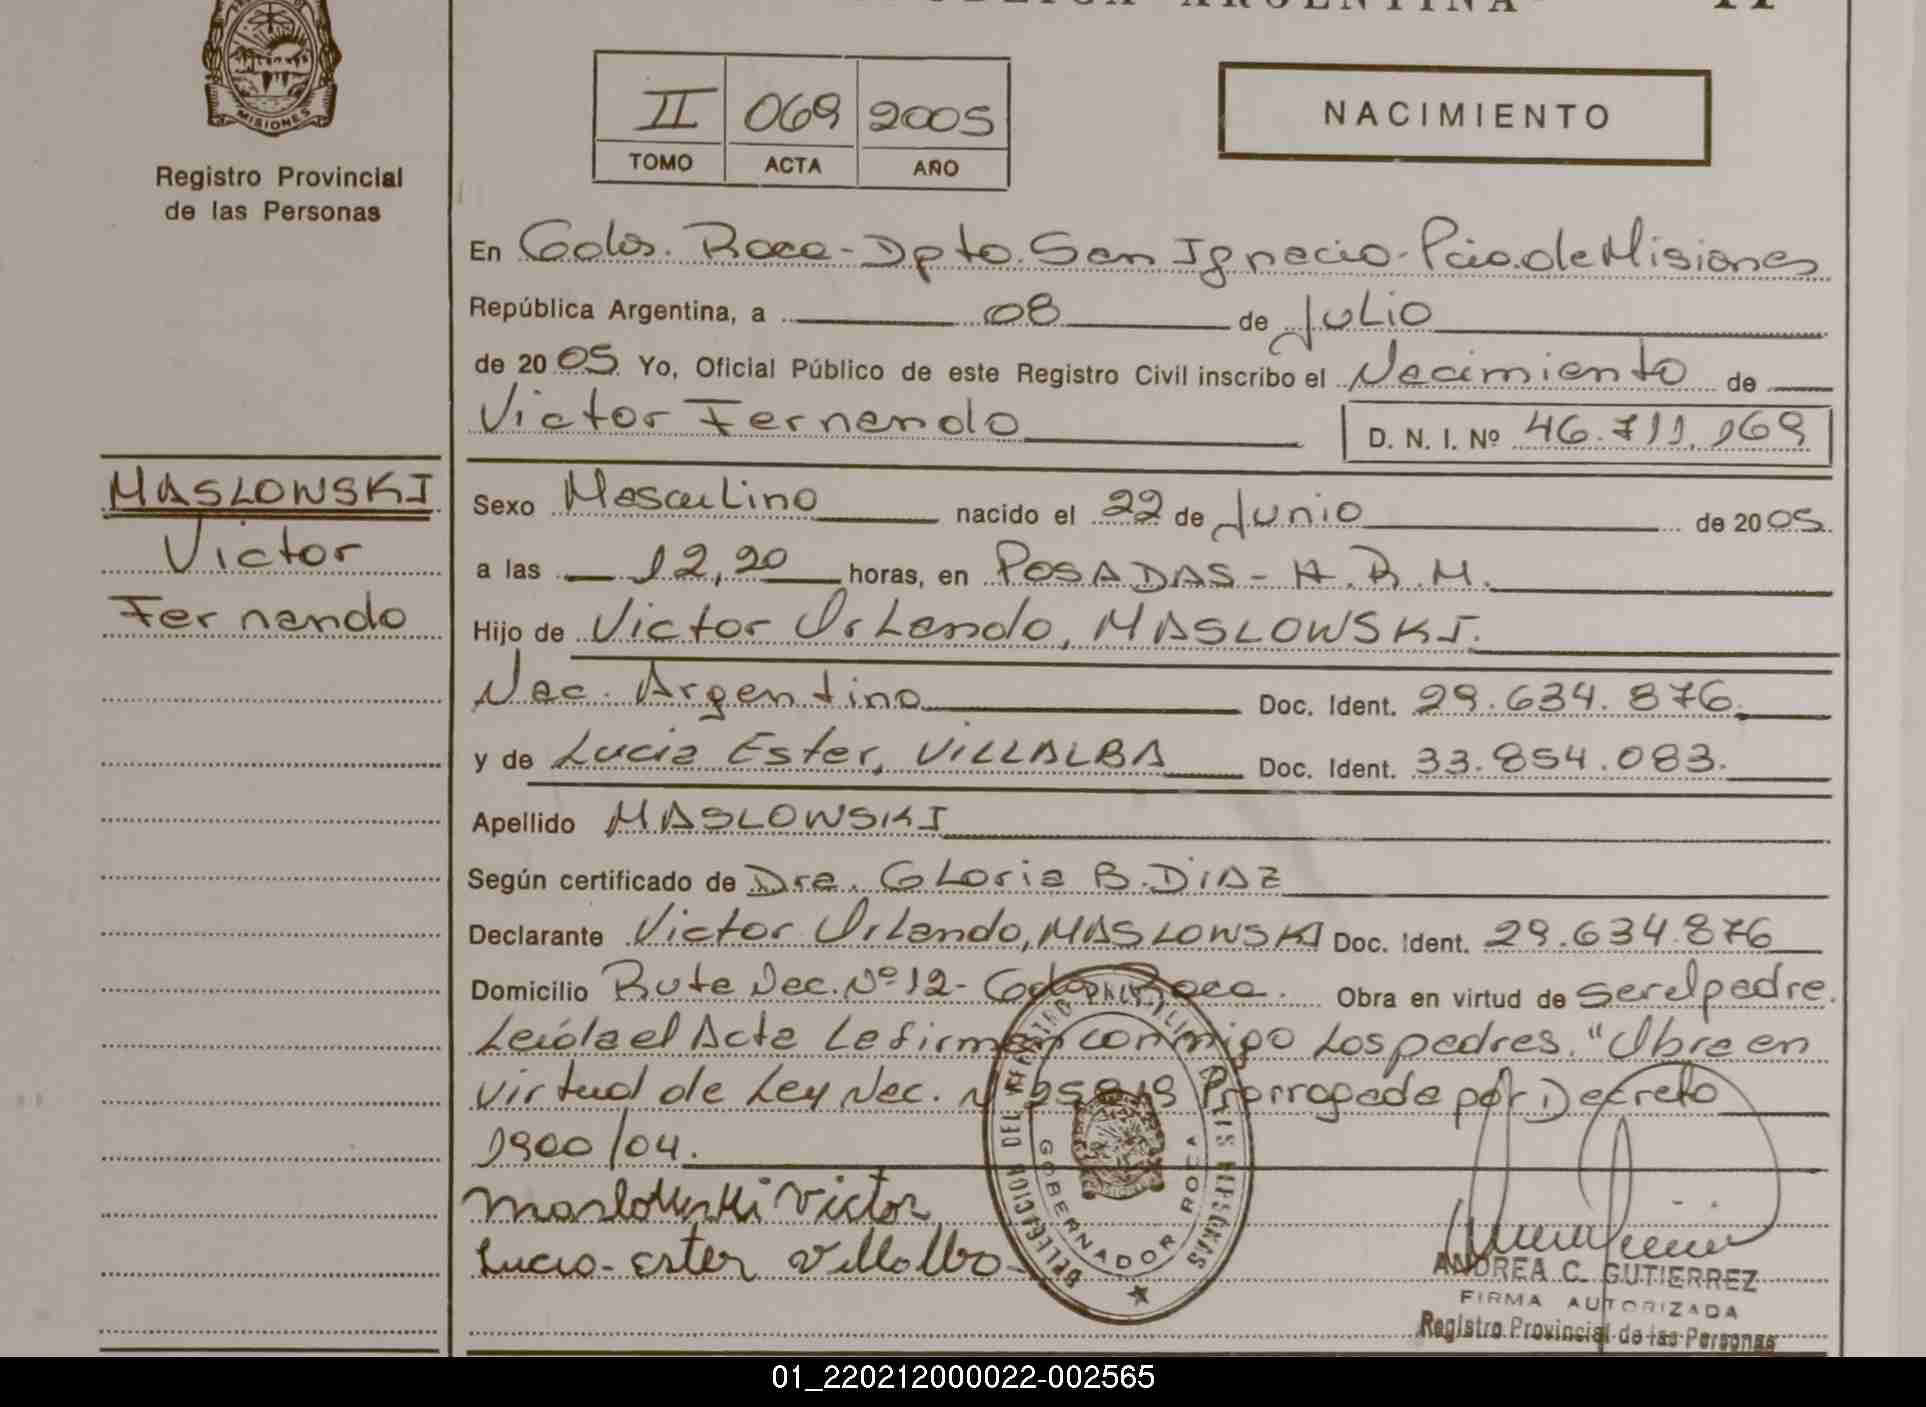 REPÚBLICA ARGENTINA
MISIONES
Registro Provincial
de las Personas
II 069 2005
TOMO ACTA AÑO
NACIMIENTO
En Gdor. Roca - Dpto. San Ignacio - Pcia. de Misiones
República Argentina, a 08 de Julio
de 2005 Yo, Oficial Público de este Registro Civil inscribo el Nacimiento de
Victor Fernando D. N. I. Nº 46.711.169
MASLOWSKI
Victor
Fernando
Sexo Masculino nacido el 22 de Junio de 2005.
a las 12,20 horas, en POSADAS - H.R.M.
Hijo de Victor Orlando, MASLOWSKI.
Nac. Argentino Doc. Ident. 29.634.876.
y de Lucia Ester, VILLALBA Doc. Ident. 33.854.083.
Apellido MASLOWSKI
Según certificado de Dra. Gloria B. DIAZ
Declarante Victor Orlando, MASLOWSKI Doc. Ident. 29.634.876
Domicilio Ruta Nac. Nº 12 - Gdor. Roca. Obra en virtud de ser el padre.
Leida el Acta La firman conmigo Los padres. "Obra en
virtud de Ley Nac. Nº 25819 Prorrogada por Decreto
1900/04.
Maslowski Victor
Lucia Ester Villalba
DELEGACION DEL REGISTRO PROVINCIAL DE LAS PERSONAS
GOBERNADOR ROCA
ANDREA C. GUTIERREZ
FIRMA AUTORIZADA
Registro Provincial de las Personas
01_220212000022-002565